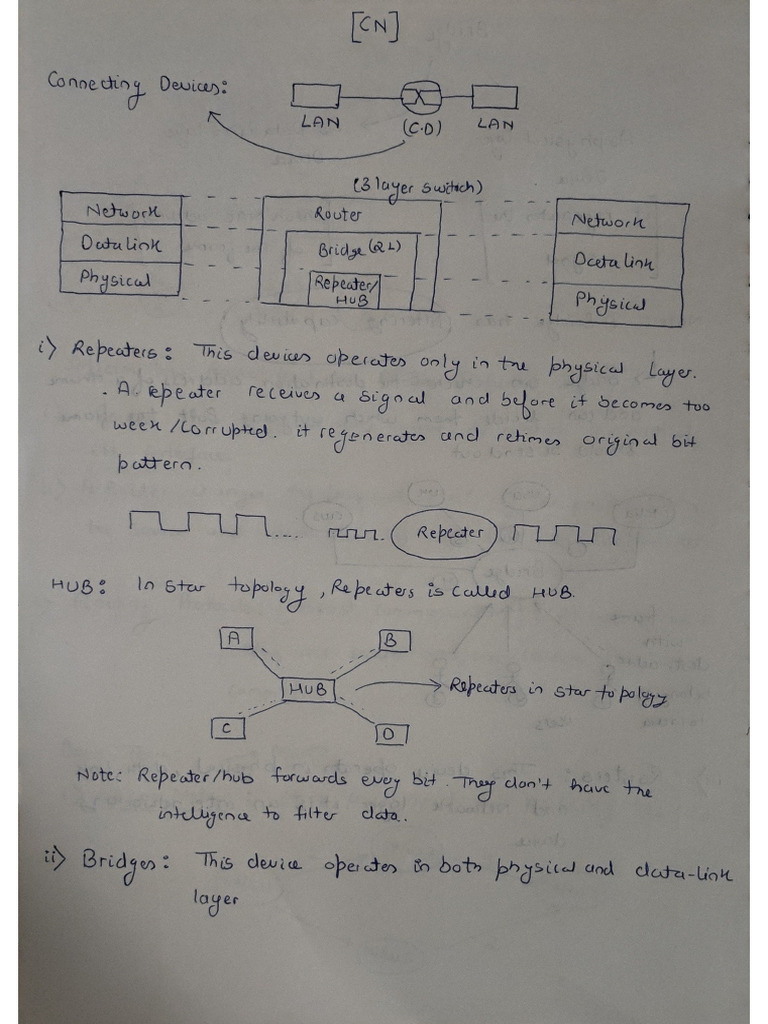 [CN]
Connecting Devices:
LAN
(C.D)
LAN
(3 layer switch)
Network
Router
Network
Datalink
Bridge (2L)
Datalink
Physical
Repeater/
HUB
Physical
i) Repeaters: This devices operates only in the physical Layer.
. A repeater receives a signal and before it becomes too
week / corrupted. it regenerates and retimes original bit
pattern.
Repeater
HUB: In star topology, Repeaters is called HUB.
A
B
HUB
Repeaters in star topology
C
D
Note: Repeater/hub forwards every bit. They don't have the
intelligence to filter data..
ii) Bridges: This device operates in both physical and data-link
layer